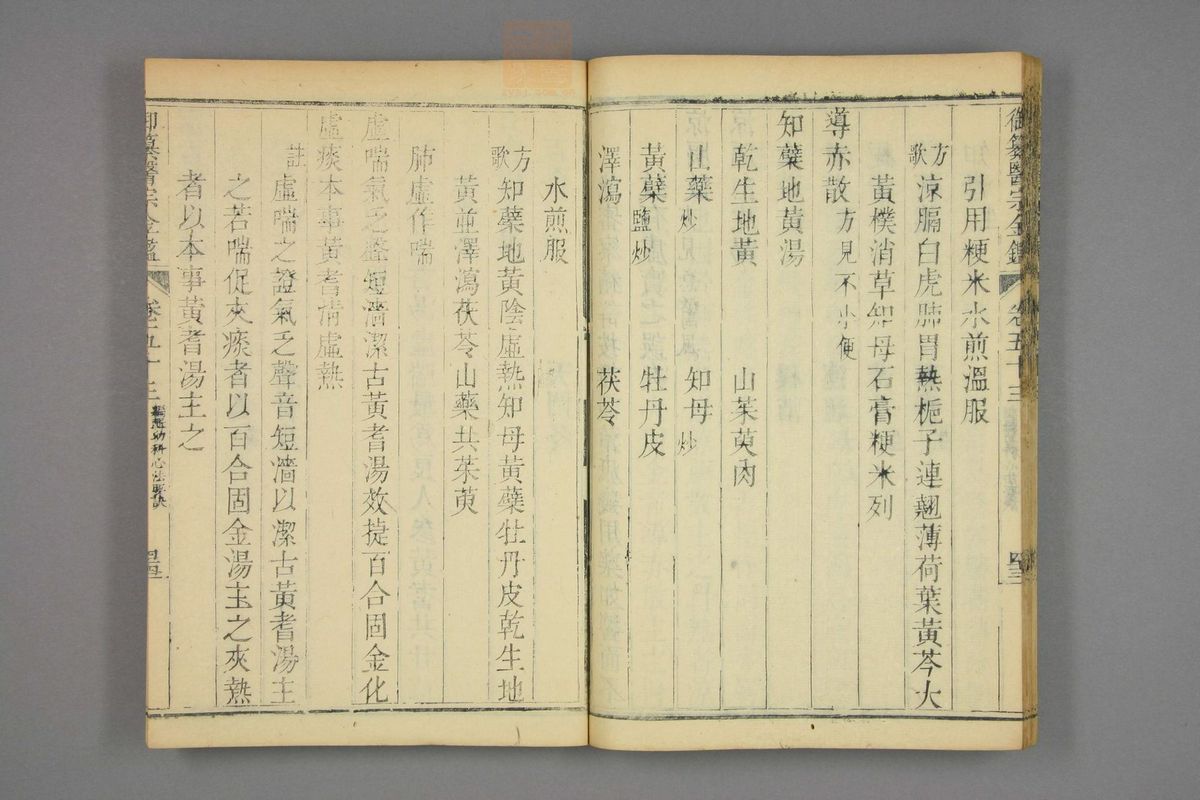 御纂醫宗金鑑 卷五十三 四三
引用粳米水煎溫服
方歌 涼膈白虎肺胃熱梔子連翹薄荷葉黃芩大
黃樸消草知母石膏粳米列
導赤散 方見不小便
知蘗地黃湯
乾生地黃 山茱萸肉
山藥 炒 知母 炒
黃蘗 鹽炒 牡丹皮
澤瀉 茯苓
水煎服
方歌 知蘗地黃陰虛熱知母黃蘗牡丹皮乾生地
黃並澤瀉茯苓山藥共茱萸
肺虛作喘
虛喘氣乏聲短濇潔古黃耆湯效捷百合固金化
虛痰本事黃耆清虛熱
註 虛喘之證氣乏聲音短濇以潔古黃耆湯主
之若喘促夾痰者以百合固金湯主之夾熱
者以本事黃耆湯主之
御纂醫宗金鑑 卷五十三 編輯幼科心法要訣 四四